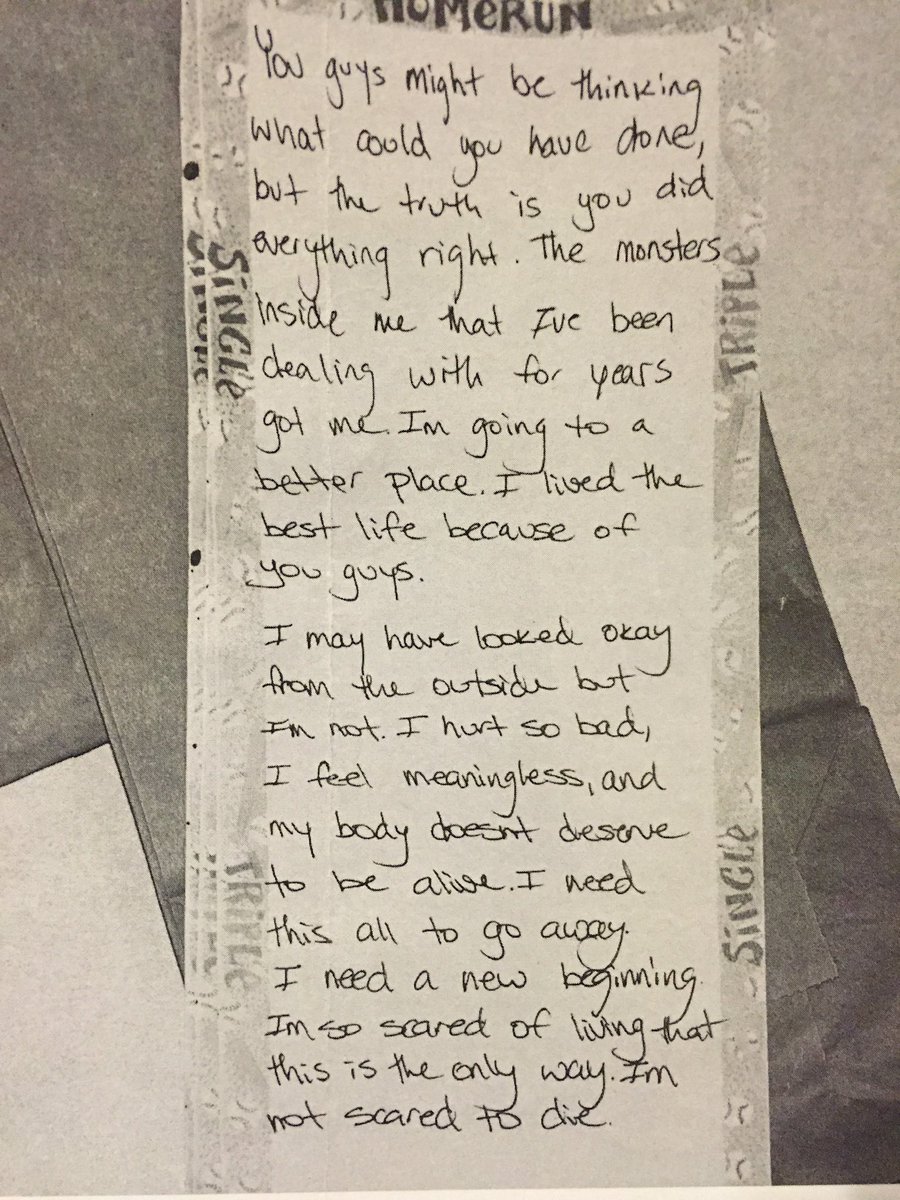 HOMERUN
You guys might be thinking
what could you have done,
but the truth is you did
everything right. The monsters
inside me that I've been
dealing with for years
got me. Im going to a
better place. I lived the
best life because of
you guys.
I may have looked okay
from the outside but
I'm not. I hurt so bad,
I feel meaningless, and
my body doesnt deserve
to be alive. I need
this all to go away.
I need a new beginning.
Im so scared of living that
this is the only way. I'm
not scared to die.
SiNGLe
TRiPLe
TRiPLe
SiNGLe